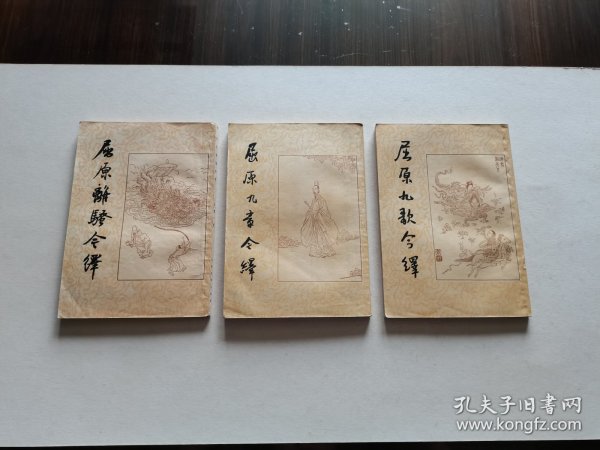 屈原離騷今繹
屈原九章今繹
屈原九歌今繹
孔夫子旧书网
www.kongfz.com